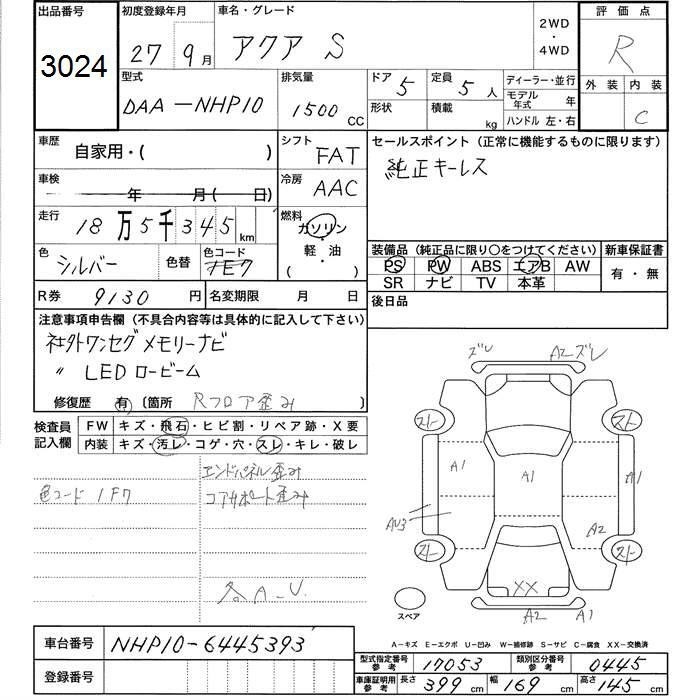 出品番号 初度登録年月 車名・グレード 2WD・4WD 評価点
3024 27 9月 アクア S R
外装 内装
C
型式 排気量 ドア 5 定員 5人 ディーラー・並行
DAA-NHP10 1500 CC 形状 積載 kg モデル年式 年
ハンドル 左・右
車歴 自家用・( ) シフト FAT セールスポイント(正常に機能するものに限ります)
純正キーレス
車検 年 月 ( 日) 冷房 AAC
走行 18万5千345km 燃料 ガソリン・軽・油・( )
色 シルバー 色替 色コード 1E7
装備品(純正品に限り○をつけてください) 新車保証書
PS PW ABS エアB AW 有・無
SR ナビ TV 本革
R券 9130円 名変期限 月 日 後日品
注意事項申告欄(不具合内容等は具体的に記入して下さい)
社外ワンセグメモリーナビ
〃 LEDロービーム
修復歴 有 (箇所 Rフロア歪み )
検査員記入欄 FW キズ・飛石・ヒビ割・リペア跡・X要
内装 キズ・汚レ・コゲ・穴・スレ・キレ・破レ
エンドパネル歪み
色コード 1F7 コアサポート歪み
各A-U
ズレ A2ズレ
スト スト
A1 A1 A1
AU3 A2
スト スト
XX
スペア A2 A1
A-キズ E-エクボ U-凹み W-補修跡 S-サビ C-腐食 XX-交換済
車台番号 NHP10-6445393
型式指定番号 参考 17053 類別区分番号 参考 0445
登録番号 車庫証明用 参考 長さ 399cm 幅 169cm 高さ 145cm